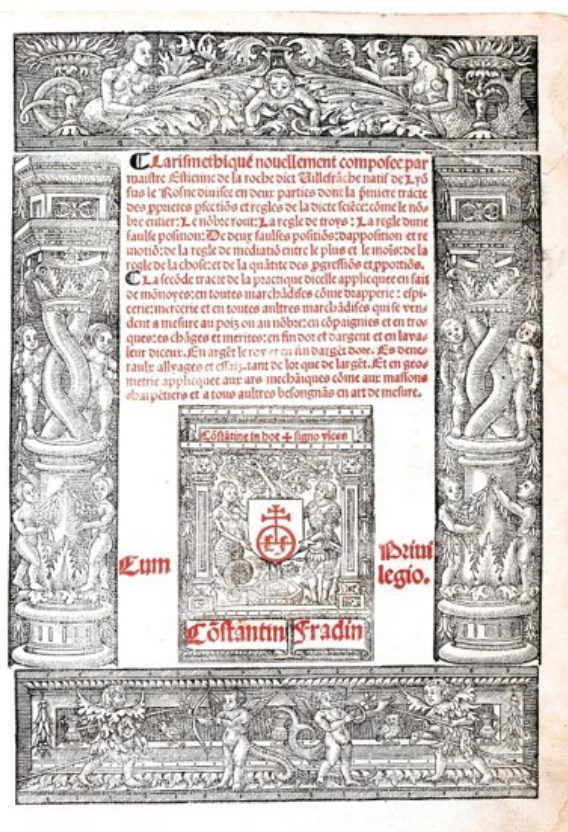 Larismethique nouellement composee par
maistre Estienne de la roche dict Uillefrāche natif de Lyō
sus le Rosne diuisee en deux parties dont la p̄miere tracte
des ꝓprietes ꝑfectiōs et regles de la dicte sciēce: cōme le nō-
bre entier: Le nōbre rout: La regle de troys: La regle dune
faulse position: De deux faulses positiōs: dapposition et re
motiō: de la regle de mediatiō entre le plus et le mois: de la
regle de la chose: et de la quātite des ꝓgressiōs et ꝓportiōs.
La secōde tracte de la practique dicelle applicquee en fait
de mōnoyes: en toutes marchādises cōme drapperie: espi-
cerie: mercerie et en toutes aultres marchādises qui se ven-
dent a mesure au poiz ou au nōbre: en cōpaignies et en tro-
ques: es chāges et merites: en fin dor et dargent et en laua-
leur diceux. En argēt le roy et en fin dargēt dore. Es dene-
raulx allyages et essaiz, tant de lor que de largēt. Et en geo-
metrie applicquee aux ars mechāiques cōme aux massons
charpētiers et a tous aultres besongnās en art de mesure.
Cōstātine in hoc signo vices
Cum
Priui
legio.
Cōstantin Fradin